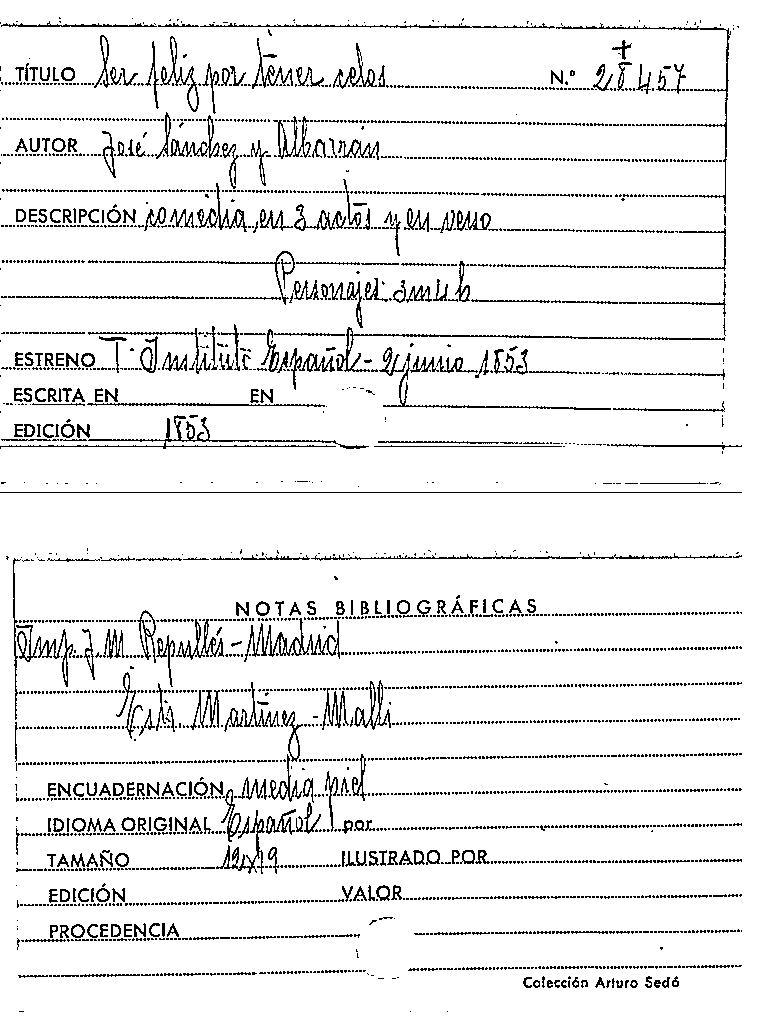 TÍTULO Ser feliz por tener celos N.º 28457
AUTOR José Sánchez y Albarrán
DESCRIPCIÓN comedia, en 3 actos y en verso
Personajes: 3m 4h
ESTRENO T. Instituto Español - 2 junio 1853
ESCRITA EN EN
EDICIÓN 1853
NOTAS BIBLIOGRÁFICAS
Imp. J. M. Repullés - Madrid
Martínez - Malli
ENCUADERNACIÓN media piel
IDIOMA ORIGINAL Español por
TAMAÑO 12x19 ILUSTRADO POR
EDICIÓN VALOR
PROCEDENCIA
Colección Arturo Sedó